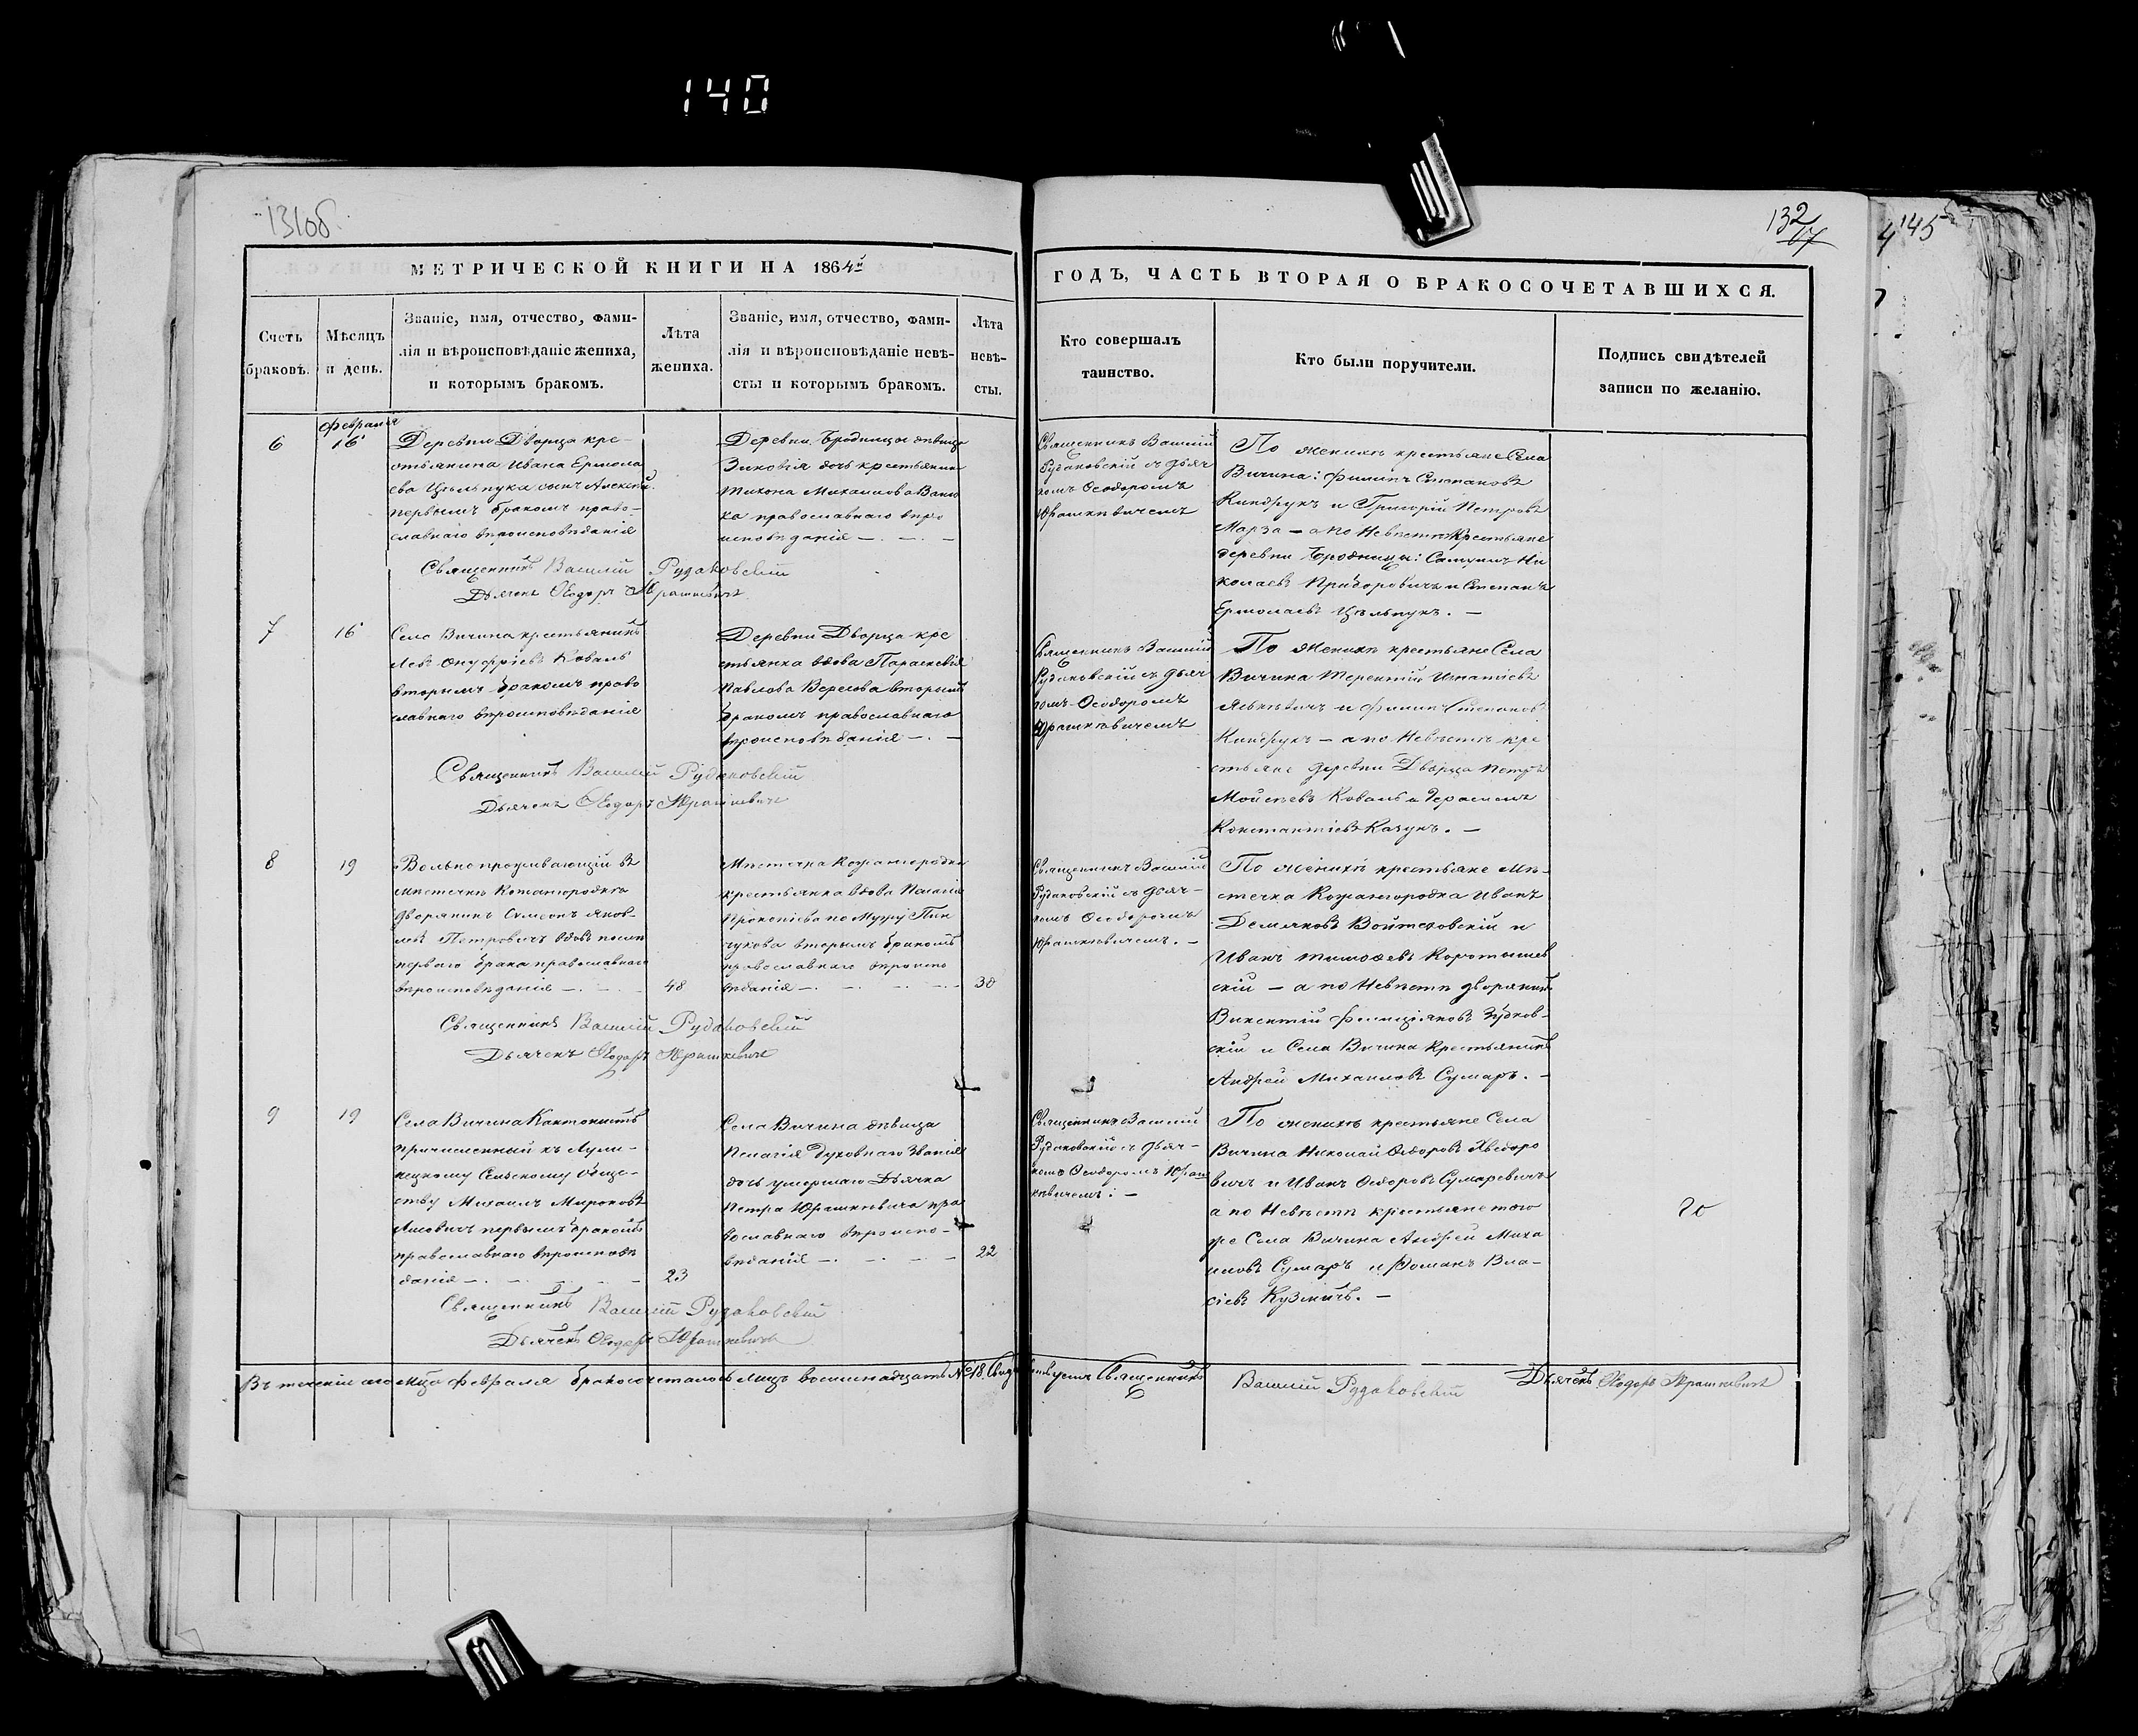 140
131об.
132
17
4 145
МЕТРИЧЕСКОЙ КНИГИ НА 1864й
ГОДЪ, ЧАСТЬ ВТОРАЯ О БРАКОСОЧЕТАВШИХСЯ.
Счетъ
браковъ.
Мѣсяцъ
и день.
Званіе, имя, отчество, фами-
лія и вѣроисповѣданіе жениха,
и которымъ бракомъ.
Лѣта
жениха.
Званіе, имя, отчество, фами-
лія и вѣроисповѣданіе невѣ-
сты и которымъ бракомъ.
Лѣта
невѣ-
сты.
Кто совершалъ
таинство.
Кто были поручители.
Подпись свидѣтелей
записи по желанію.
6
Февраля
16
Деревни Дворца кре-
стьянина Ивана Ермола
ева Цѣльпука сынъ Алексѣй
первымъ бракомъ право-
славнаго вѣроисповѣданія
Деревни Бродницы дѣвица
Зиновія дочь крестьянин
Тихона Михайлова
ка православнаго вѣро
исповѣданія —. —. —
Священникъ Василій
Рудаковскій съ дьяч
комъ Ѳеодоромъ
Юрашкѣвичемъ
По женихѣ крестьяне Села
Вичина: Филипъ Степановъ
Киндрукъ и Григорій Петровъ
Марза — а по Невѣстѣ крестьяне
деревни Бродницы: Самуилъ Ни
колаевъ Придоровичъ и Степанъ
Ермолаевъ Цѣльпукъ. —
Священникъ Василій Рудаковскій
Дьячекъ Ѳеодоръ Юрашкевичъ
7
16
Села Вичина крестьянинъ
Левъ Онуфріевъ Коваль
вторымъ бракомъ право
славнаго вѣроисповѣданія
Деревни Дворца кре
стьянка вдова Параскевія
Павлова Вересова вторымъ
бракомъ православнаго
вѣроисповѣданія —. —
Священникъ Василій
Рудаковскій съ дьяч
комъ Ѳеодоромъ
Юрашкѣвичемъ
По женихѣ крестьяне Села
Вичина Терентій Игнатіевъ
и Филипъ Степановъ
Киндрукъ — а по Невѣстѣ кре
стьяне деревни Дворца Петръ
Мойсѣевъ Коваль и Герасимъ
Константіевъ Качукъ. —
Священникъ Василій Рудаковскій
Дьячекъ Ѳеодоръ Юрашкевичъ
8
19
Вольнопроживающій въ
мѣстечкѣ Кожангородкѣ
дворянинъ Симеонъ Яков-
левъ Петровичъ вдовъ послѣ
перваго брака православнаго
вѣроисповѣданія —. —. —
48
Мѣстечка Кожангородка
крестьянка вдова Пелагія
Прокопіева по Мужу Пин
чукова вторымъ бракомъ
православнаго вѣроиспо
вѣданія —. —. —
30
Священникъ Василій
Рудаковскій съ дьяч-
комъ Ѳеодоромъ
Юрашкѣвичемъ. —
По женихѣ крестьяне Мѣ-
стечка Кожангородка Иванъ
Демяновъ Войтеховскій и
Иванъ Тимоѳеевъ Коротышев
скій — а по Невѣстѣ дворянинъ
Викентій Фелиціяновъ
скій и Села Вичина Крестьянинъ
Андрей Михаиловъ Сумаръ. —
Священникъ Василій Рудаковскій
Дьячекъ Ѳеодоръ Юрашкевичъ
9
19
Села Вичина Кантонистъ
причисленный къ Луни-
нецкому Сельскому обще-
ству Михаилъ Мироновъ
первымъ бракомъ
православнаго вѣроисповѣ
данія —. —. —
23
Села Вичина дѣвица
Пелагія Духовнаго Званія
дочь умершаго Дьячка
Петра Юрашкѣвича пра
вославнаго вѣроиспо-
вѣданія —. —. —
22
Священникъ Василій
Рудаковскій съ дьяч-
комъ Ѳеодоромъ Юраш
кѣвичемъ: —
По женихѣ крестьяне Села
Вичина Николай Ѳедоровъ Хведоро
вичъ и Иванъ Ѳедоровъ Сумаревичъ
а по Невѣстѣ крестьяне того
же Села Вичина Андрей Миха
иловъ Сумаръ и Романъ Вла-
сіевъ Кузмичъ. —
Священникъ Василій Рудаковскій
Дьячекъ Ѳеодоръ Юрашкевичъ
Въ теченіи сего Мца Февраля бракосочеталось лицъ восемнадцать №18. Свидѣтельствуетъ Священникъ Василій Рудаковскій Дьячекъ Ѳеодоръ Юрашкевичъ